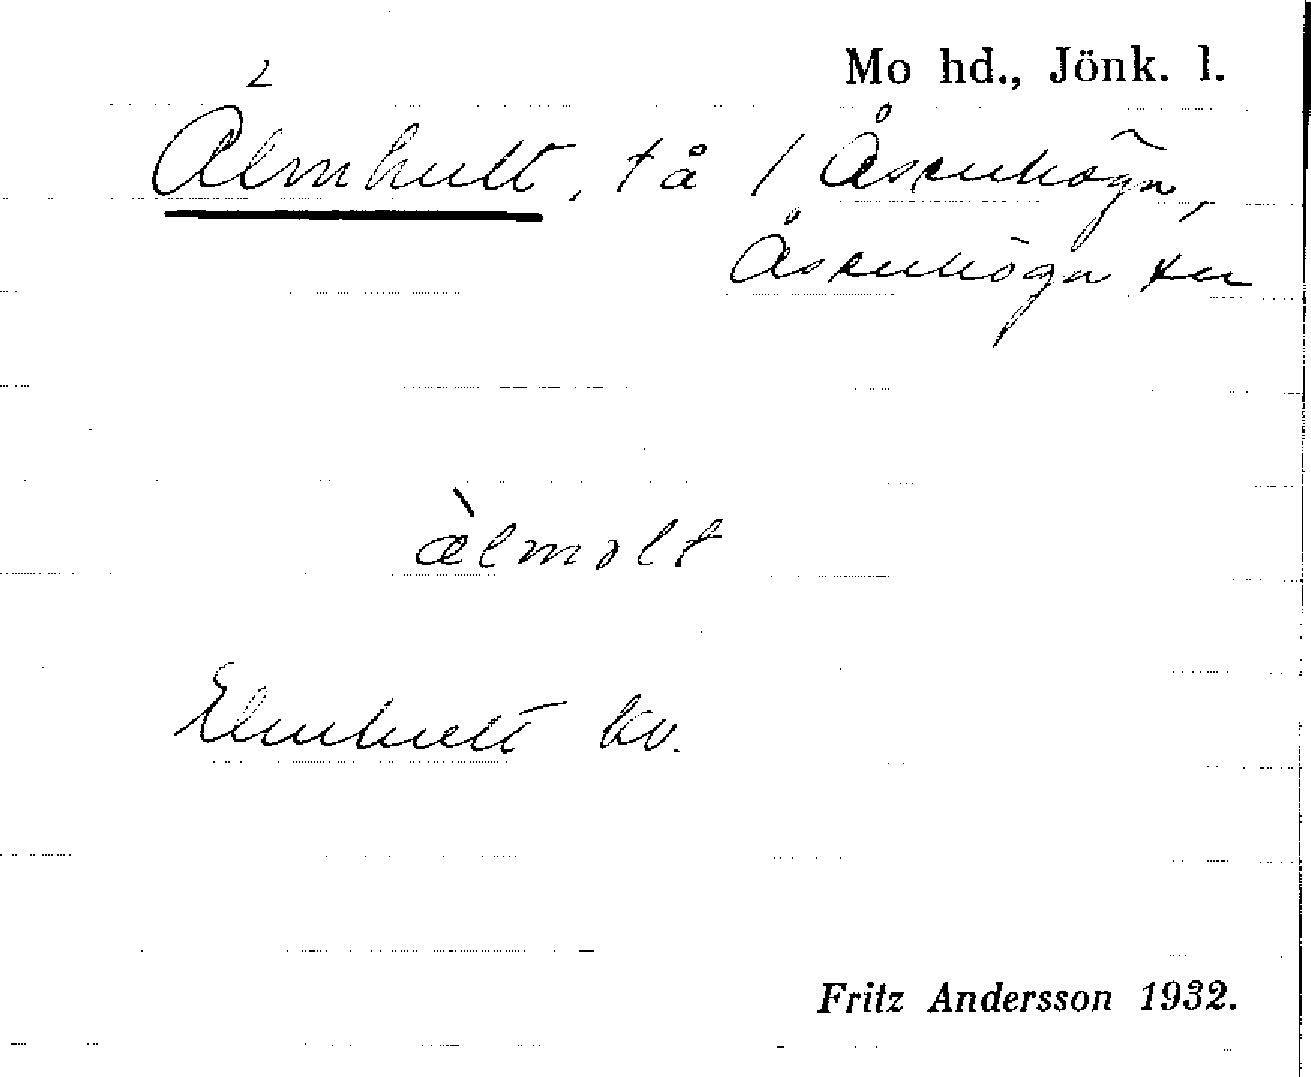 Mo hd., Jönk. l.
Älmhult, tå / Åsenhöga,
Åsenhöga sn
àlmolt
Elmhult kv.
Fritz Andersson 1932.